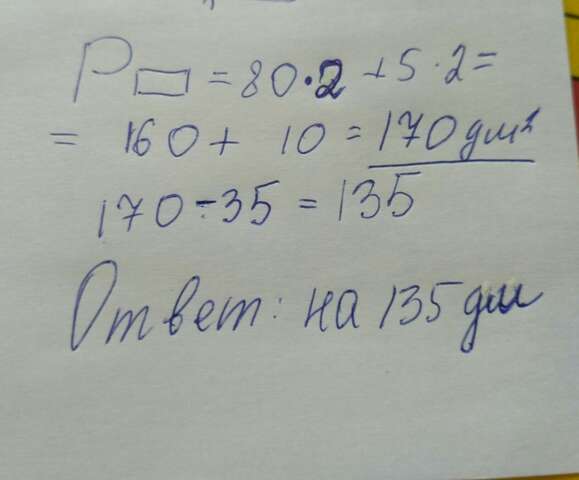 P▭ = 80·2 + 5·2 =
= 160 + 10 = 170 дм²
170 - 35 = 135
Ответ: на 135 дм